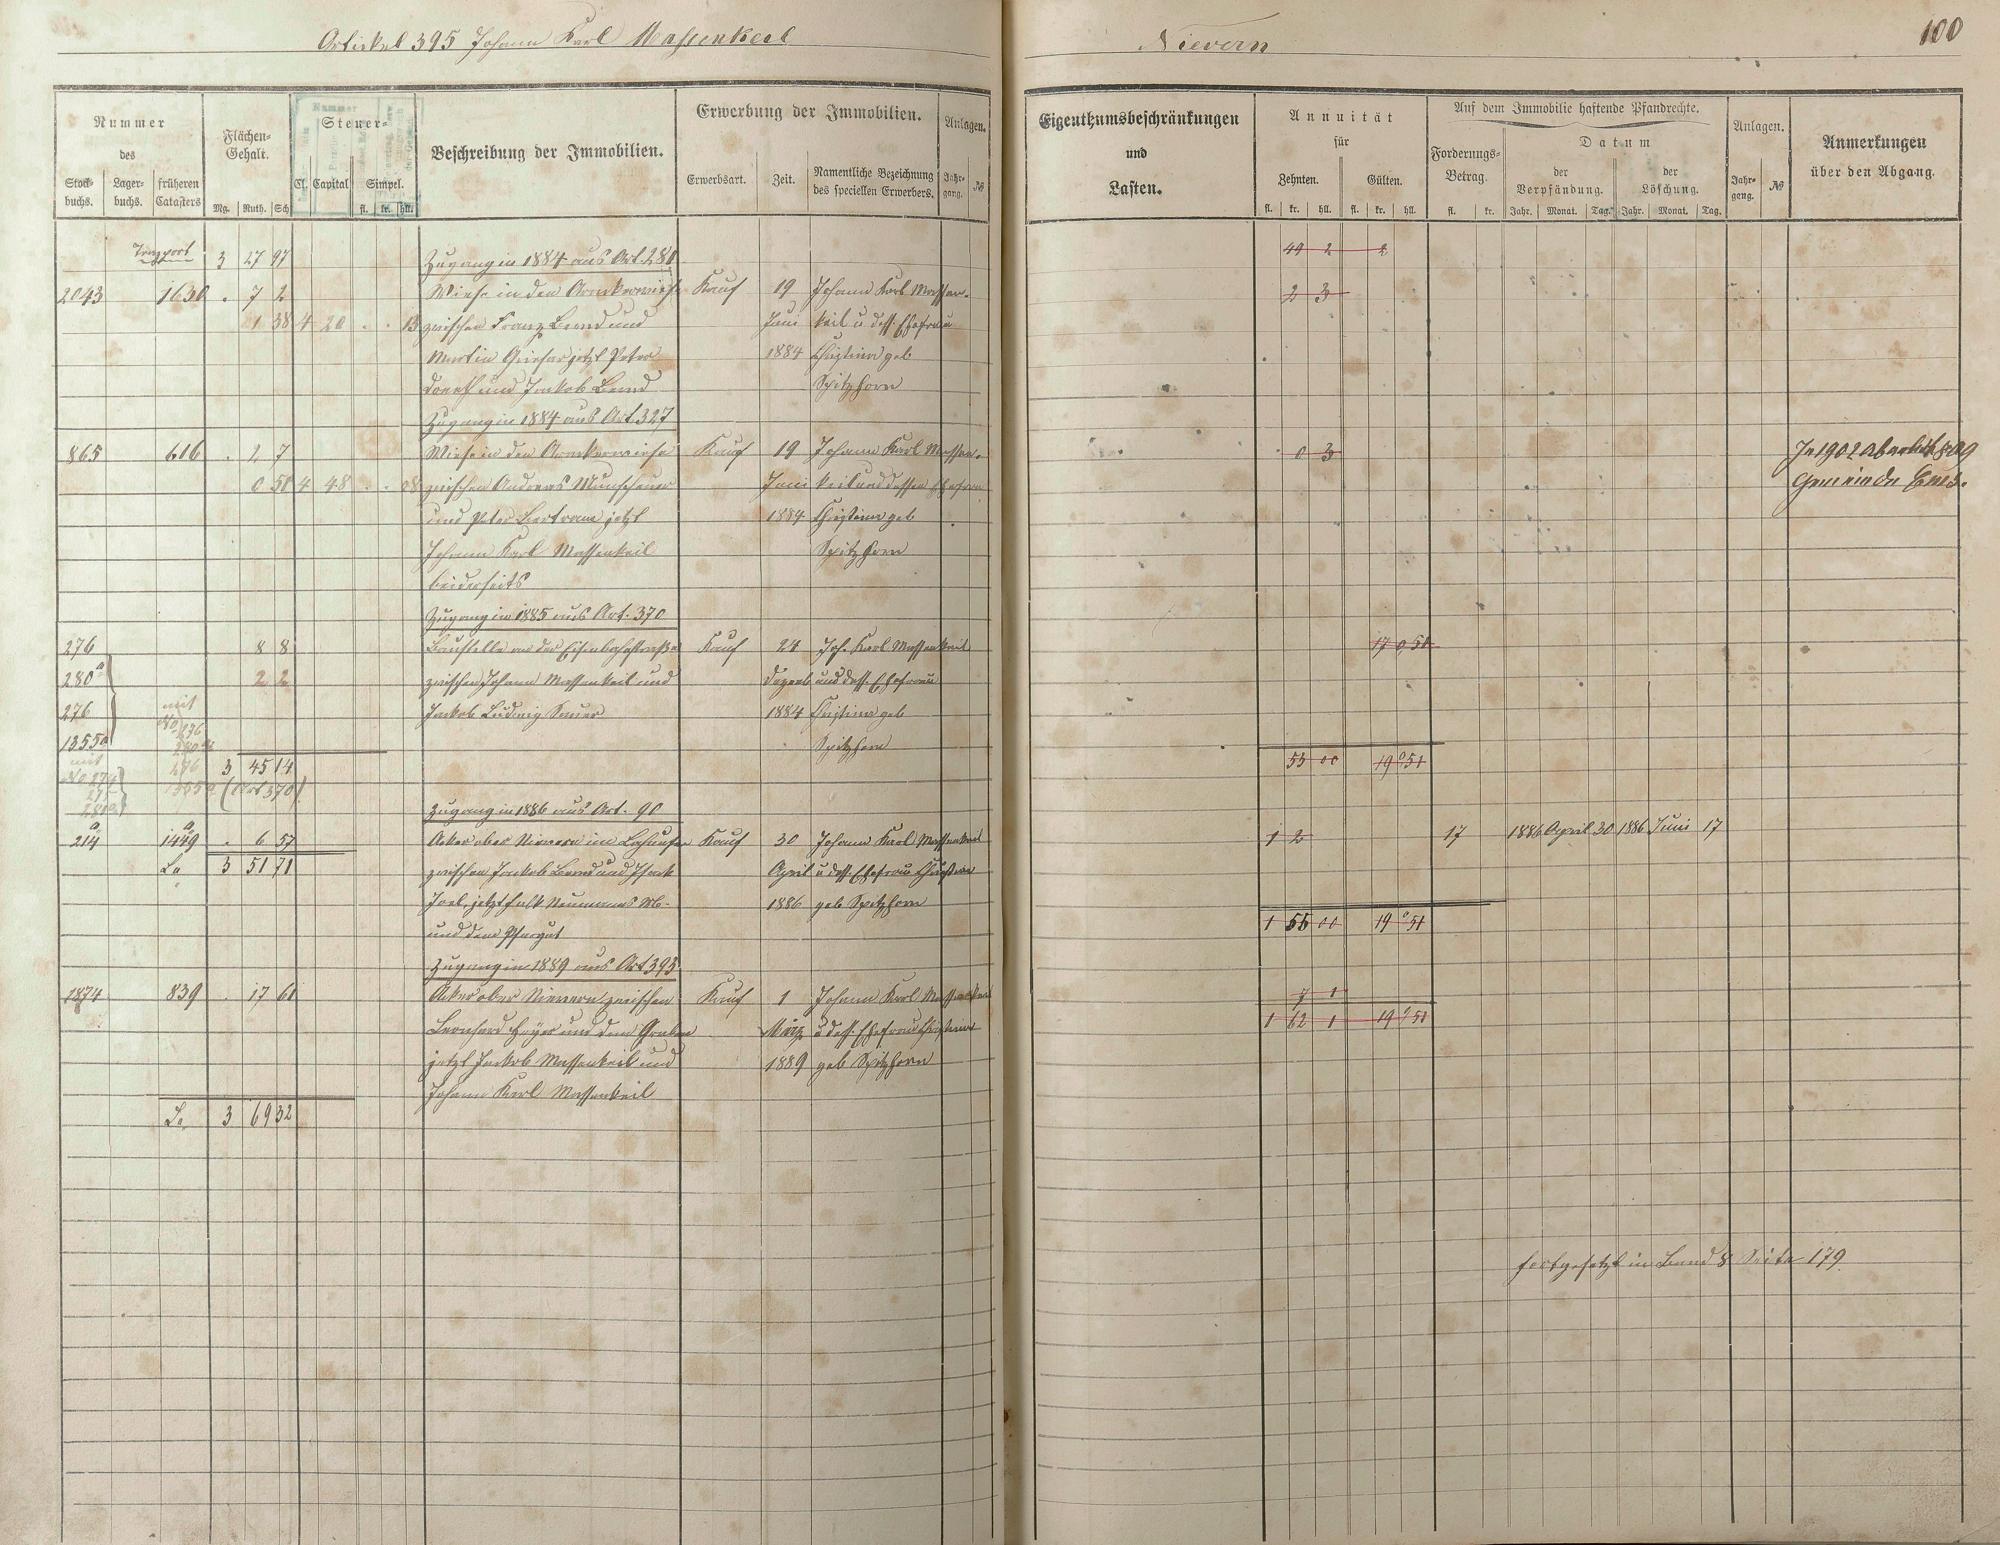 Artickel 395 Johann Karl Massenkeil
Nievern
100
Nummer
des
Stock-
buchs.
Lager-
buchs.
früheren
Catasters
Flächen-
Gehalt.
Mg. Ruth. Sch
Steuer-
Cl. Capital
Simpel.
fl. kr. hll.
Beschreibung der Immobilien.
Erwerbung der Immobilien.
Erwerbsart.
Zeit.
Namentliche Bezeichnung
des speciellen Erwerbers.
Anlagen.
Jahr-
gang.
№
Eigenthumsbeschränkungen
und
Lasten.
Annuität
für
Zehnten.
Gülten.
fl. kr. hll. fl. kr. hll.
Auf dem Immobilie haftende Pfandrechte.
Forderungs-
Betrag.
fl. kr.
Datum
der
Verpfändung.
der
Löschung.
Jahr. Monat. Tag. Jahr. Monat. Tag.
Anlagen.
Jahr-
gang.
№
Anmerkungen
über den Abgang.
Transport 3 27 97 49 2 2
Zugang in 1884 aus Art. 280
2043 1630 . 7 2 Wiese in den Kauf 19 Johann Karl Massen- 2 3
1 38 4 20 . . 13 zwischen Franz Bernd und Juni keil u dess. Ehefrau
Martin jetzt Peter 1884 Christina geb
und Jakob Bernd Spitzhorn
Zugang in 1884 aus Art. 327
865 616 . 2 7 Wiese in den Kauf 19 Johann Karl Massen- 0 3 In 1902
0 58 4 48 . . 08 zwischen Andreas Munscheuer Juni keil und dessen Ehefrau Gemeinde Ems.
und Peter Bertram jetzt 1884 Christina geb
Johann Karl Massenkeil Spitzhorn
beiderseits
Zugang in 1885 aus Art. 370
276 8 8 Baustelle an der Eisenbahnstraße Kauf 24 Joh. Karl Massenkeil 17 0 50
280 a 2 2 zwischen Johann Massenkeil und Dezemb und dess. Ehefrau
276 mit Jakob Ludwig Sauer 1884 Christina geb
1355a No 276 Spitzhorn
276 3 45 14 55 00 19 0 51
1355a (Art 370)
Zugang in 1886 aus Art. 90
214 a 1449 a . 6 57 Acker ober Nievern im Kauf 30 Johann Karl Massenkeil 1 2 17 1886 April 30 1886 Juni 17
La 3 51 71 zwischen Jakob Bernd und April u dess. Ehefrau Christina
Joel, jetzt Falk 1886 geb Spitzhorn
und dem Pfargut 1 55 00 19 0 51
Zugang in 1889 aus Art 393
1874 839 . 17 61 Acker ober Nievern zwischen Kauf 1 Johann Karl Massenkeil 7 1
Leonhard und dem Graben März u dess. Ehefrau Christina 1 62 1 19 0 51
jetzt Jakob Massenkeil und 1889 geb Spitzhorn
Johann Karl Massenkeil
La 3 69 32
fortgesetzt in Band 8 Seite 179.